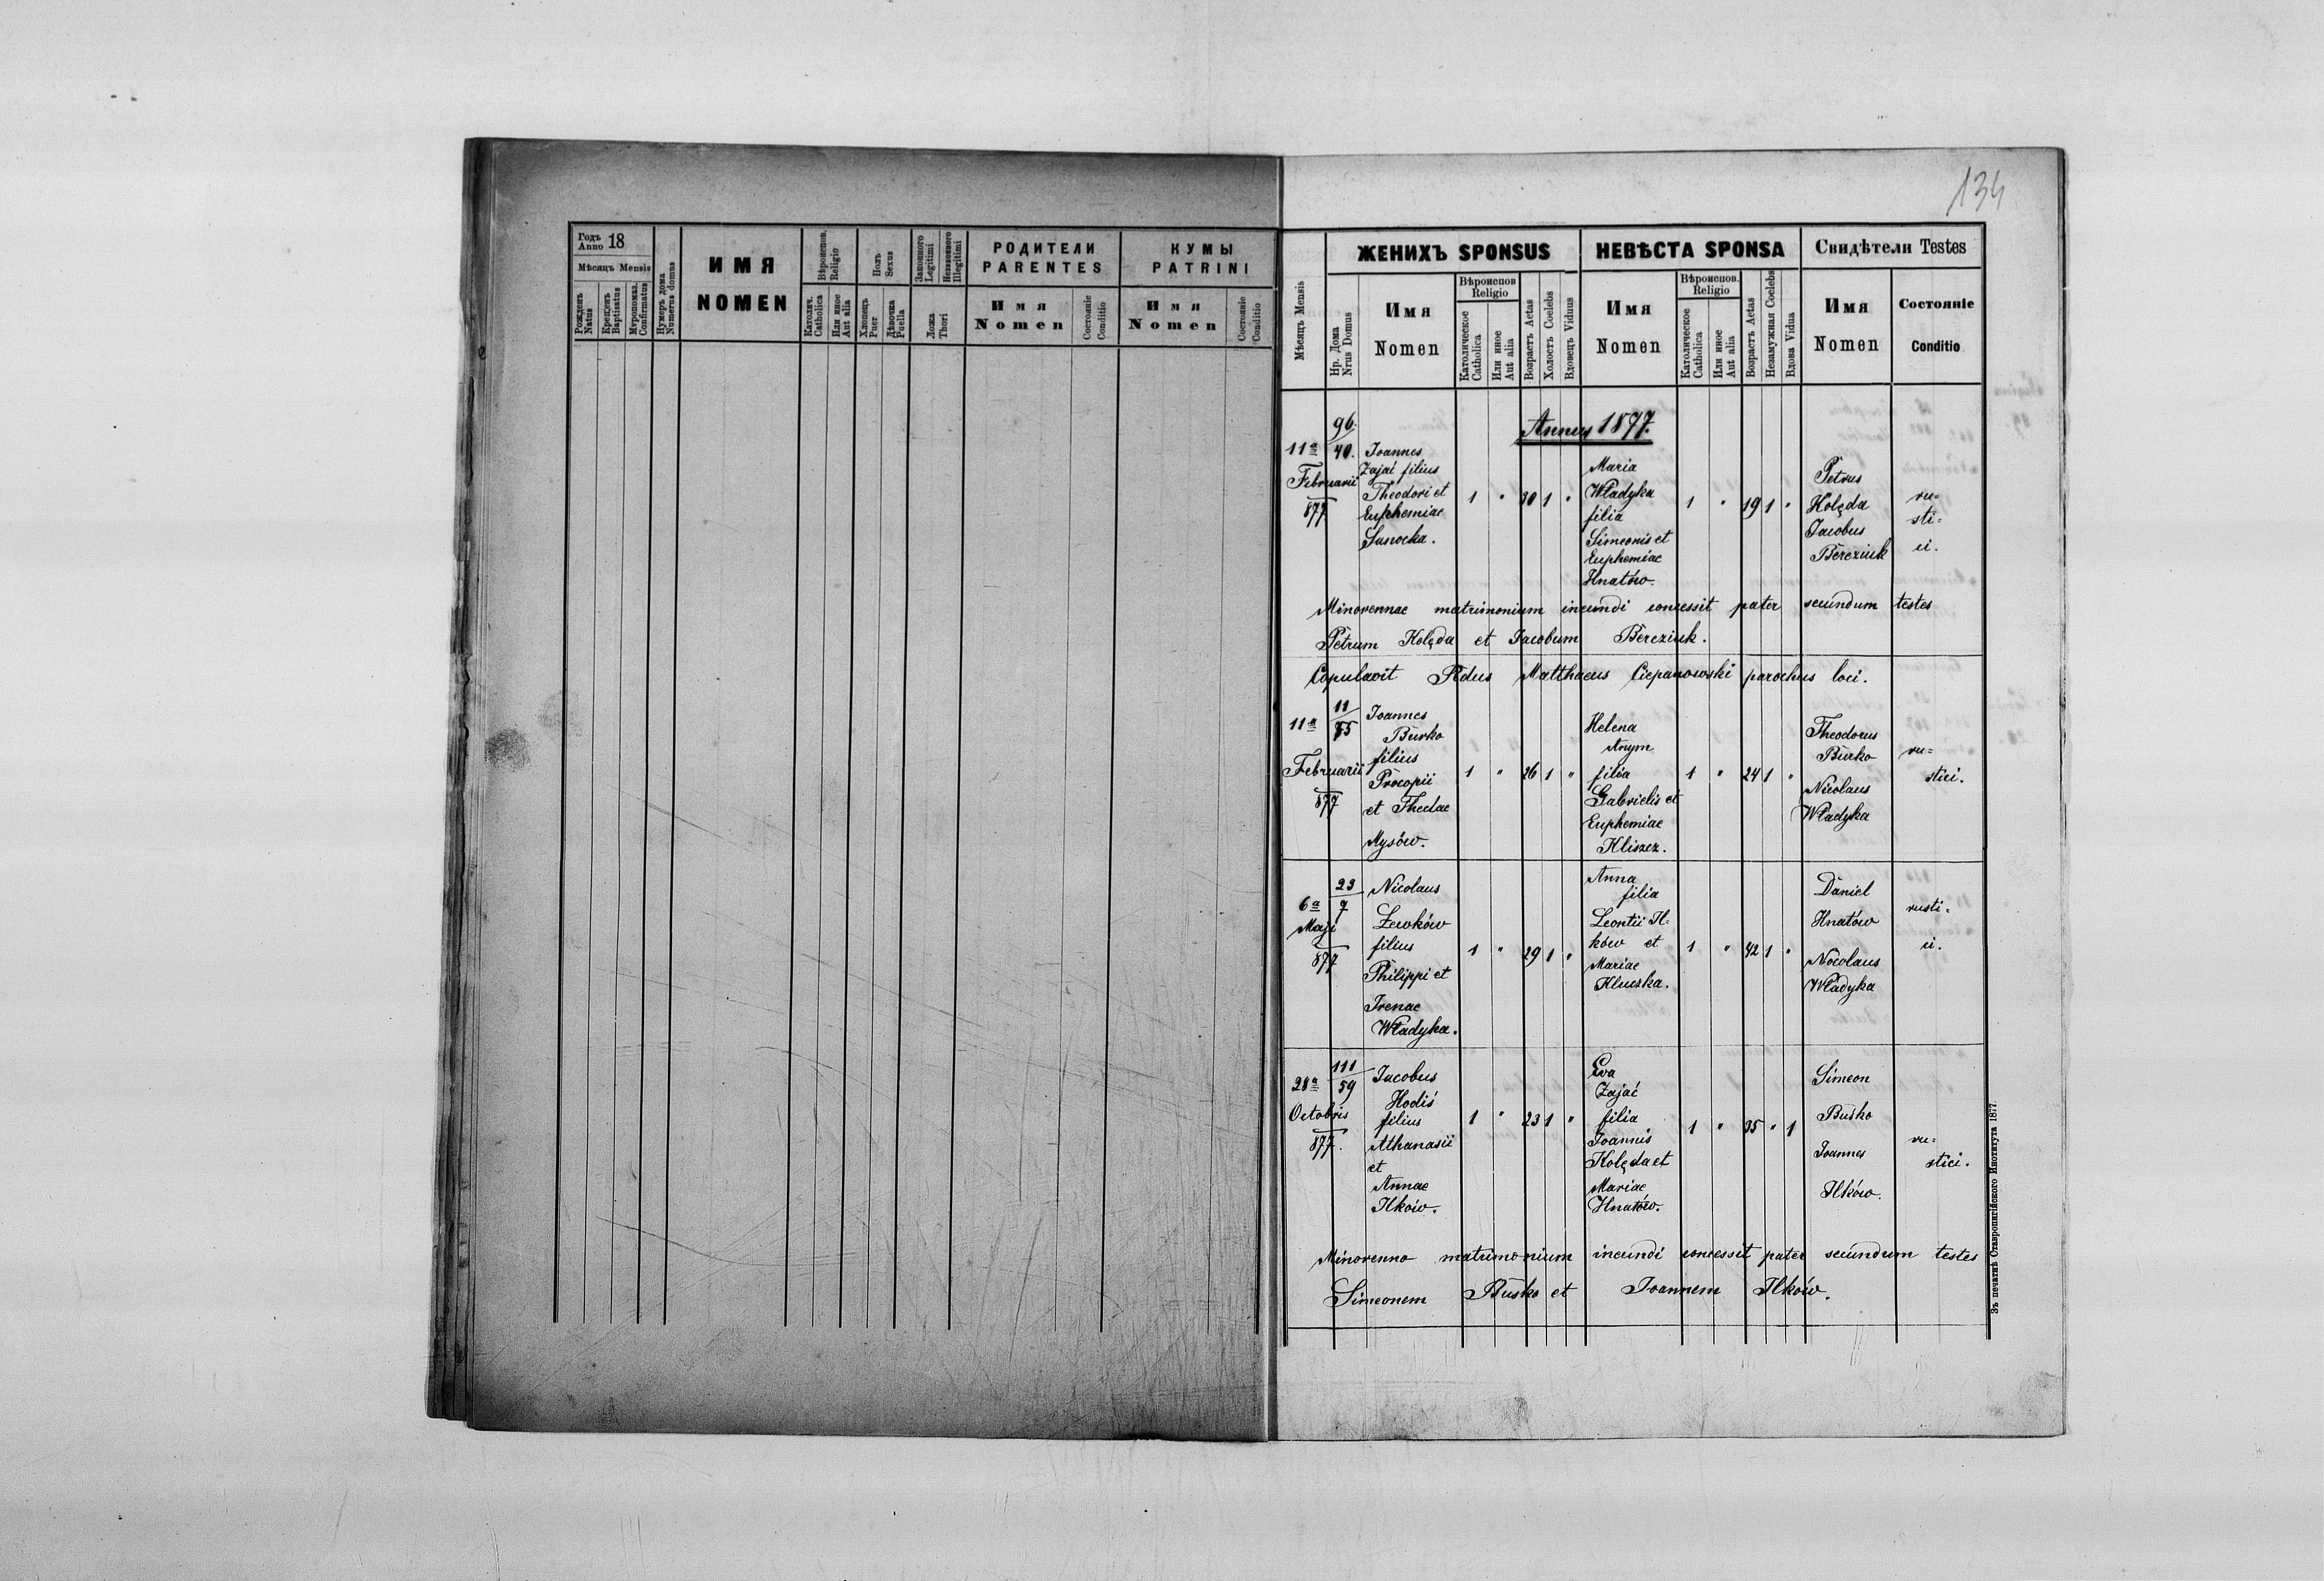 134
Годъ Anno 18
Мѣсяцъ Mensis
Рожденъ Natus
Крещенъ Baptisatus
Мѵропомаз. Confirmatus
Нумеръ дома Numerus domus
ИМЯ
NOMEN
Вѣроиспов. Religio
Католич. Catholica
Или иное Aut alia
Полъ Sexus
Хлопецъ Puer
Дѣвочка Puella
Законного Legitimi
Незаконного Illegitimi
Ложа Thori
РОДИТЕЛИ
PARENTES
Имя
Nomen
Состояніе Conditio
КУМЫ
PATRINI
Имя
Nomen
Состояніе Conditio
Мѣсяцъ Mensis
Нр. Дома Nrus Domus
ЖЕНИХЪ SPONSUS
Имя
Nomen
Вѣроиспов Religio
Католическое Catholica
Или иное Aut alia
Возрастъ Aetas
Холостъ Coelebs
Вдовецъ Viduus
НЕВѢСТА SPONSA
Имя
Nomen
Вѣроиспов. Religio
Католическое Catholica
Или иное Aut alia
Возрастъ Aetas
Незамужная Coelebs
Вдова Vidua
Свидѣтели Testes
Имя
Nomen
Состояніе
Conditio
Annus 1877.
11a Februarii 877
96. 40.
Joannes
Zajać filius
Theodori et
Euphemiae
Sanocka.
1 " 30 1 "
Maria
Władyka
filia
Simeonis et
Euphemiae
Hnatów.
1 " 19 1 "
Petrus
Kolęda
Jacobus
Bereziuk
ru=
sti=
ci.
Minorennae matrimonium ineundi concessit pater secundum testes
Petrum Kolęda et Jacobum Bereziuk.
Copulavit Rdus Matthaeus Ciepanowski parochus loci.
11a Februarii 877
11
Joannes
Burko
filius
Procopii
et Theclae
Mysów.
1 " 26 1 "
Helena
Anym
filia
Gabrielis et
Euphemiae
Kliszcz.
1 " 24 1 "
Theodorus
Burko
Nicolaus
Władyka
ru=
stici.
6a Maji 877
23 7
Nicolaus
Lewków
filius
Philippi et
Irenae
Władyka.
1 " 29 1 "
Anna
filia
Leontii Il=
ków et
Mariae
Kluczka.
1 " 42 1 "
Daniel
Hnatów
Nocolaus
Władyka
rusti=
ci.
28a Octobris 877.
111 59
Jacobus
Hodiś
filius
Athanasii
et
Annae
Ilków.
1 " 23 1 "
Eva
Zajać
filia
Joannis
Kolęda et
Mariae
Hnatów.
1 " 35 " 1
Simeon
Buśko
Joannes
Ilków.
ru=
stici.
Minorenno matrimonium ineundi concessit pater secundum testes
Simeonem Buśko et Joannem Ilków.
Зъ печатнѣ Ставропигійского Института 1877.